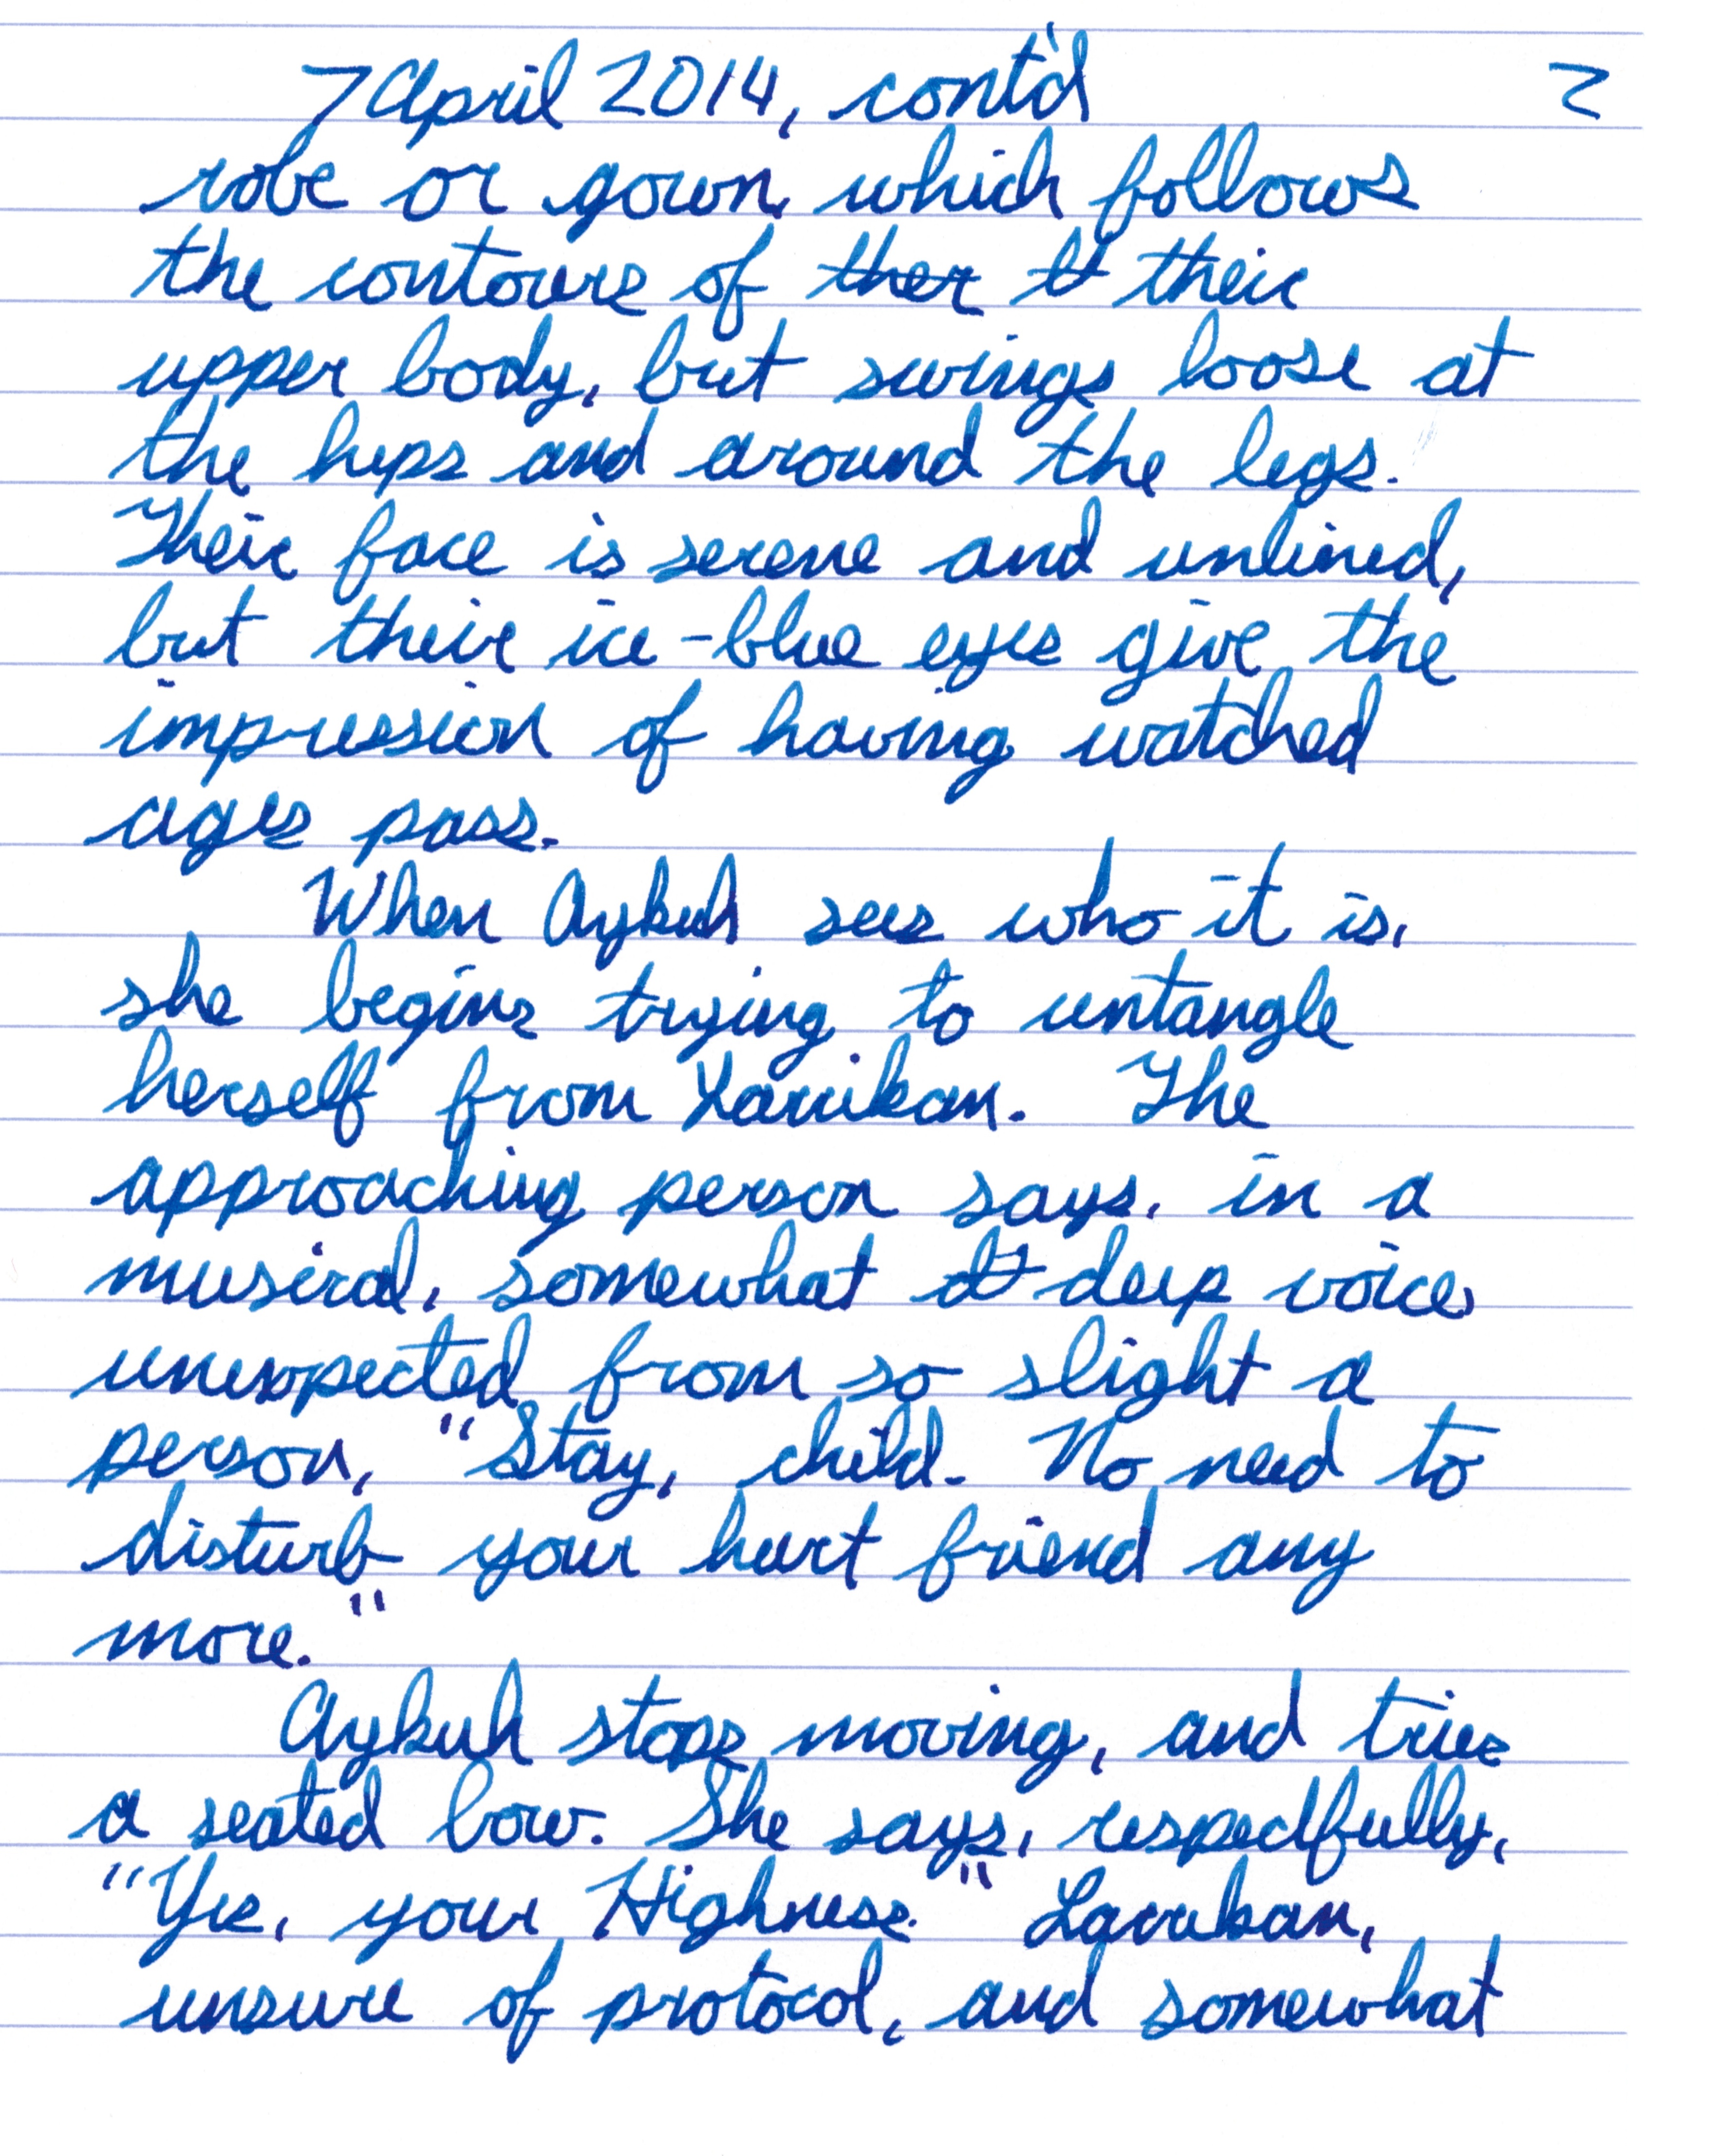 7 April 2014, cont'd 2
robe or gown, which follows
the contours of ther tt their
upper body, but swings loose at
the hips and around the legs.
Their face is serene and unlined,
but their ice-blue eyes give the
impression of having watched
ages pass.
When Aykuh sees who it is,
she begins trying to untangle
herself from Larikan. The
approaching person says, in a
musical, somewhat dt deep voice,
unexpected from so slight a
person, "Stay, child. No need to
disturb your hurt friend any
more."
Aykuh stops moving, and tries
a seated bow. She says, respectfully,
"Yes, your Highness." Larikan,
unsure of protocol, and somewhat